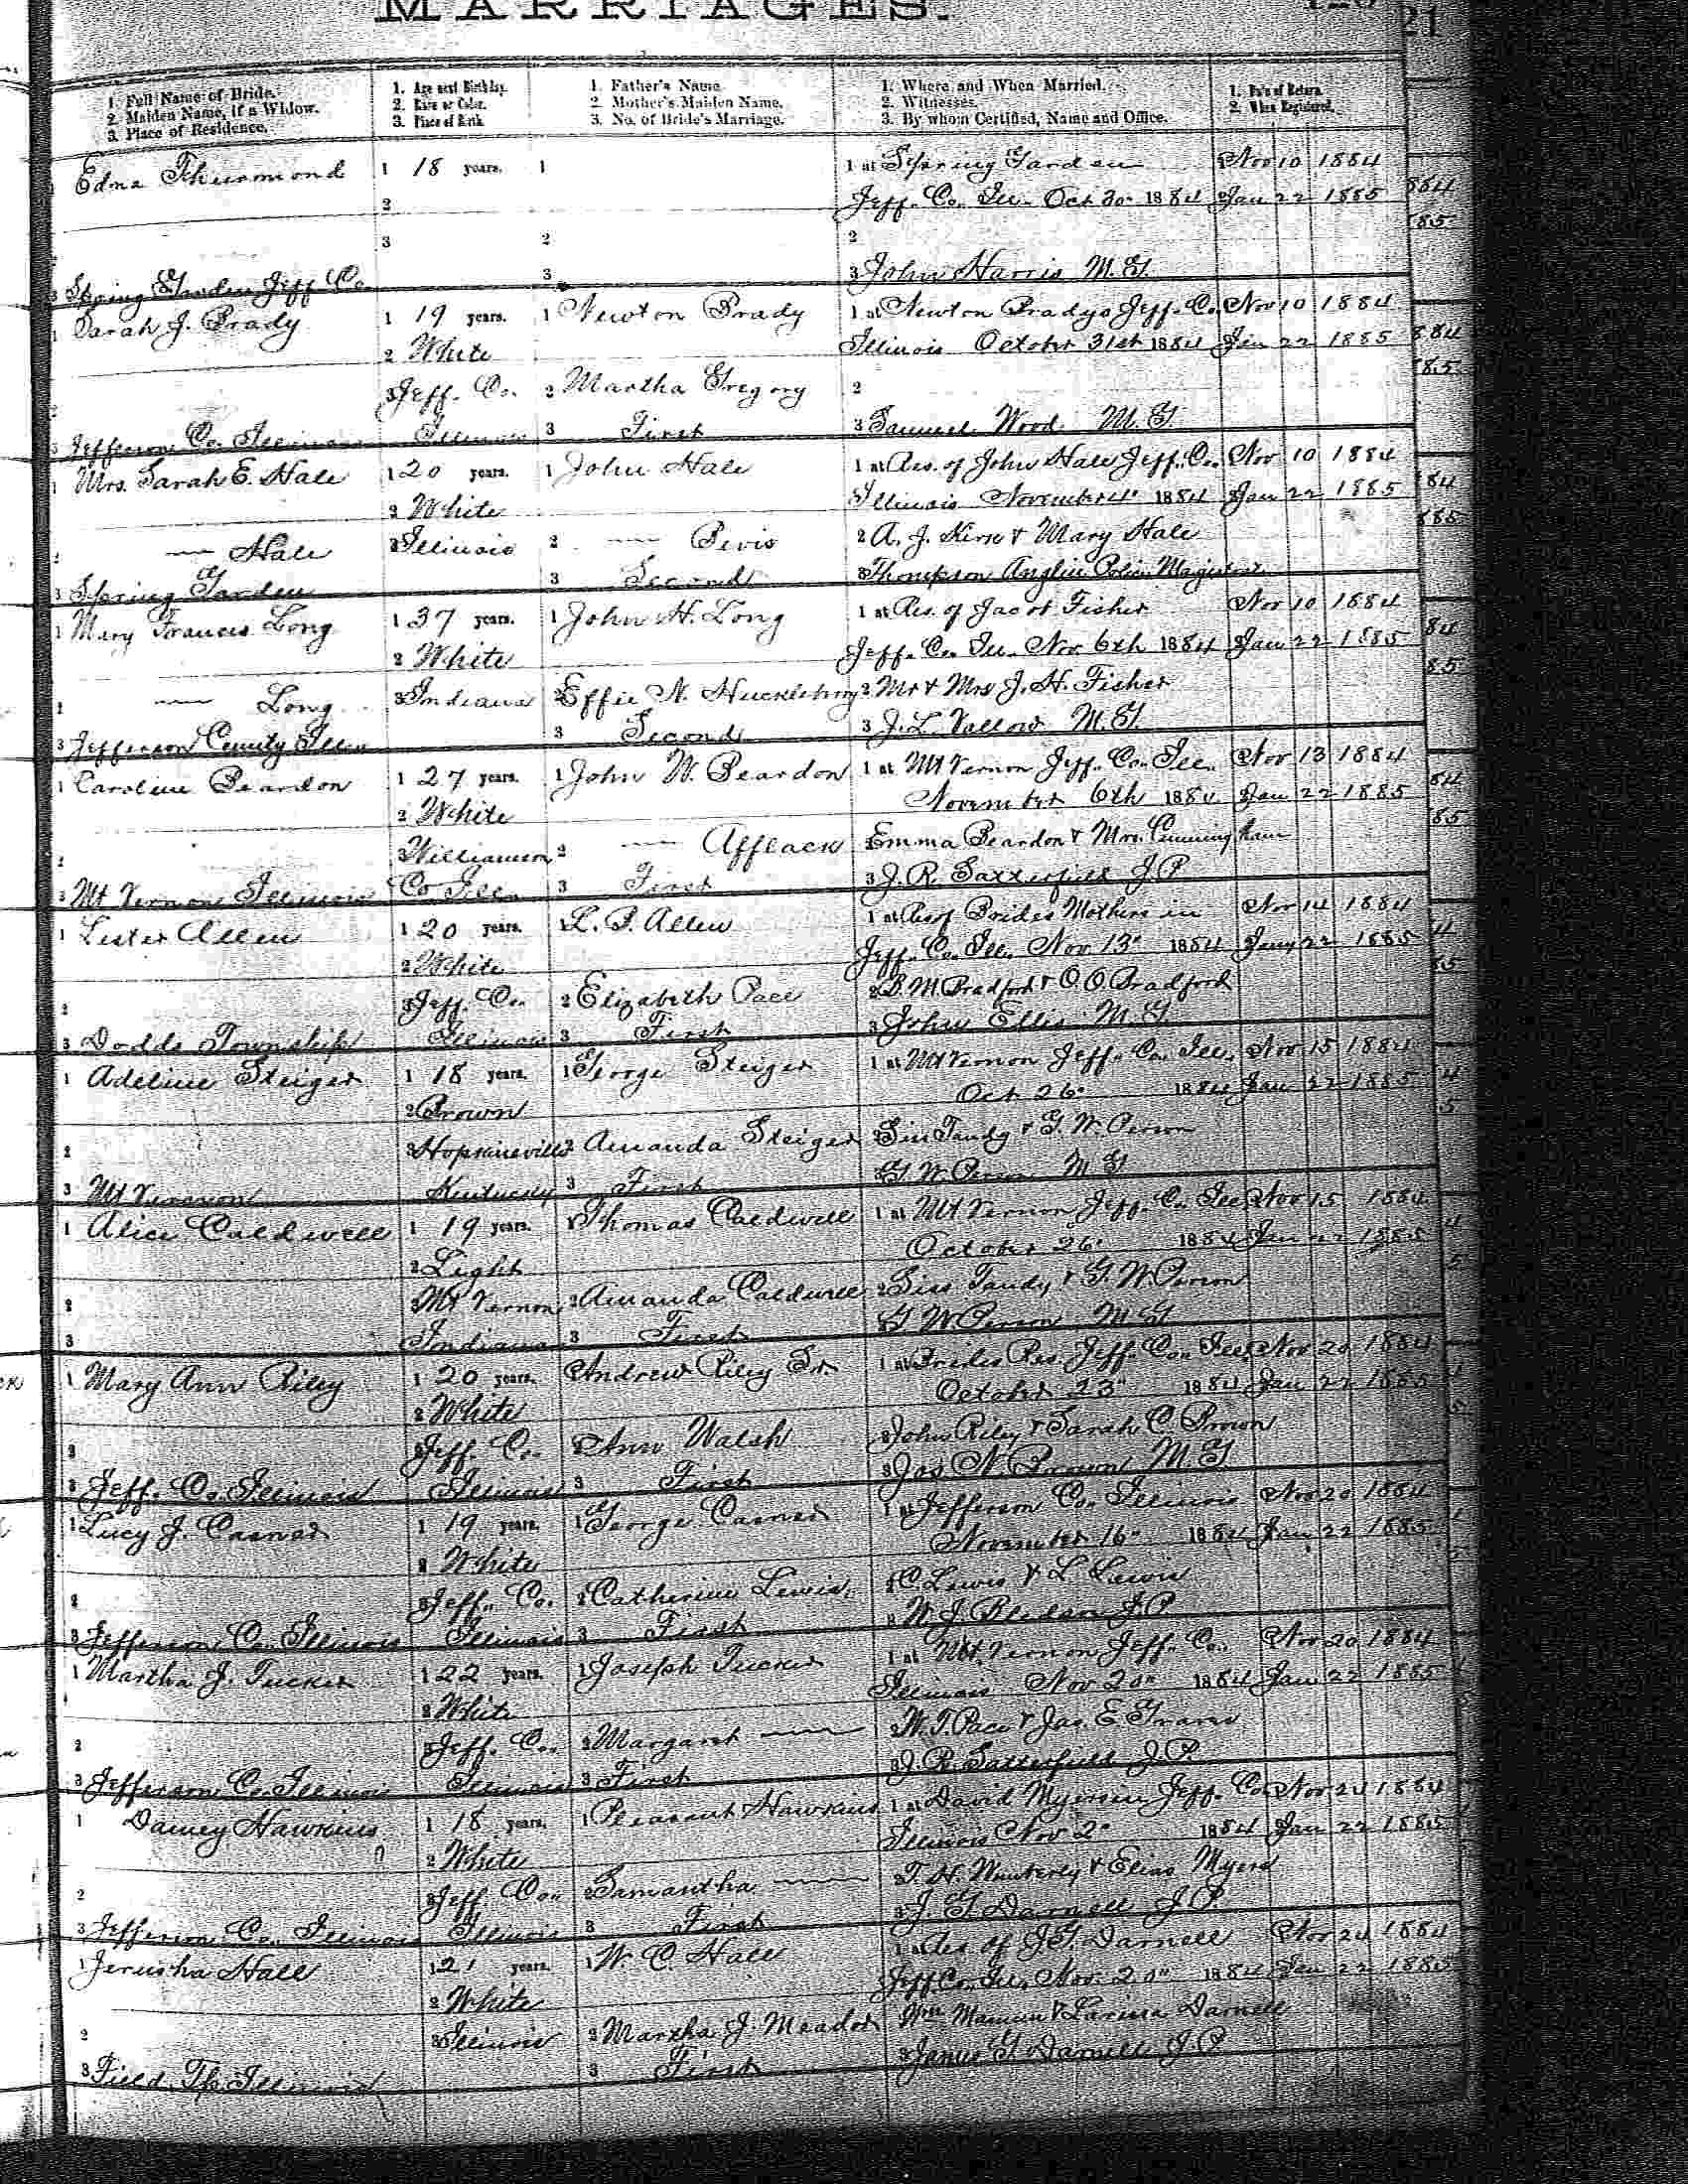 MARRIAGES.
1. Full Name of Bride.
2. Maiden Name, if a Widow.
3. Place of Residence.
1. Age next Birthday.
2. Race or Color.
3. Place of Birth.
1. Father's Name
2. Mother's Maiden Name.
3. No. of Bride's Marriage.
1. Where and When Married.
2. Witnesses.
3. By whom Certified, Name and Office.
1. Date of Return.
2. When Registered.
Edna Thurmond 1 18 years. 1 1 at Spring Garden Nov 10 1884
2 Jeff. Co. Ill. Oct 30" 1884 Jan 22 1885
3 2 2
3 Spring Garden Jeff Co 3 3 John Harris M.G.
1 Sarah J. Brady 1 19 years. 1 Newton Brady 1 at Newton Bradys Jeff. Co. Nov 10 1884
2 White Illinois October 31st 1884 Jan 22 1885
2 3 Jeff. Co. 2 Martha Gregory 2
3 Jefferson Co. Illinois Illinois 3 First 3 Samuel Wood M.G.
1 Mrs. Sarah E. Hale 1 20 years. 1 John Hale 1 at Res. of John Hale Jeff. Co. Nov 10 1884
2 White Illinois November 4" 1884 Jan 22 1885
2 — Hale 3 Illinois 2 — Bevis 2 A. J. Kirk & Mary Hale
3 Spring Garden 3 Second 3 Thompson Anglin Police Magistrate
1 Mary Frances Long 1 37 years. 1 John H. Long 1 at Res. of Jacob Fisher Nov 10 1884
2 White Jeff. Co. Ill. Nov 6th 1884 Jan 22 1885
2 — Long 3 Indiana 2 Effie N. Huckleberry 2 Mr & Mrs J. H. Fisher
3 Jefferson County Ills 3 Second 3 J. L. Vallow M.G.
1 Caroline Reardon 1 27 years. 1 John W. Reardon 1 at Mt Vernon Jeff. Co. Ill. Nov 13 1884
2 White November 6th 1884 Jan 22 1885
2 3 Williamson 2 — Afflack 2 Emma Reardon & Mrs. Cunningham
3 Mt Vernon Illinois Co Ills 3 First 3 J. R. Satterfield J.P.
1 Lester Allen 1 20 years. 1 L. T. Allen 1 at Res of Brides Mothers in Nov 14 1884
2 White Jeff. Co. Ill. Nov 13" 1884 Jany 22 1885
2 3 Jeff. Co. 2 Elizabeth Pace 2 B M Bradford & O. O. Bradford
3 Dodds Township Illinois 3 First 3 John Ellis M.G.
1 Adeline Steiger 1 18 years. 1 George Steiger 1 at Mt Vernon Jeff. Co. Ill. Nov 15 1884
2 Brown Oct 26" 1884 Jan 22 1885
2 3 Hopkinsville 2 Amanda Steiger 2 Tandy & G. W. Person
3 Mt Vernon Kentucky 3 First 3 G. W. Person M.G.
1 Alice Caldwell 1 19 years. 1 Thomas Caldwell 1 at Mt Vernon Jeff. Co. Ill. Nov 15 1884
2 Light October 26" 1884 Jan 22 1885
2 3 Mt Vernon 2 Amanda Caldwell 2 Tandy & G. W. Person
3 Indiana 3 First 3 G. W. Person M.G.
1 Mary Ann Riley 1 20 years. 1 Andrew Riley Sr. 1 at Brides Res. Jeff. Co. Ill. Nov 20 1884
2 White October 23" 1884 Jan 22 1885
2 3 Jeff. Co. 2 Ann Walsh 2 John Riley & Sarah C. Brown
3 Jeff. Co. Illinois Illinois 3 First 3 Jos N. Brown M.G.
1 Lucy J. Casner 1 19 years. 1 George Casner 1 at Jefferson Co. Illinois Nov 20 1884
2 White November 16" 1884 Jan 22 1885
2 3 Jeff. Co. 2 Catherine Lewis 2 C. Lewis & L. Lewis
3 Jefferson Co. Illinois Illinois 3 First 3 W. J. Bledson J.P.
1 Martha J. Tucker 1 22 years. 1 Joseph Tucker 1 at Mt. Vernon Jeff. Co. Nov 20 1884
2 White Illinois Nov 20" 1884 Jan 22 1885
2 3 Jeff. Co. 2 Margaret — 2 W. T. Pace & Jas. E.
3 Jefferson Co. Illinois Illinois 3 First 3 J. R. Satterfield J.P.
1 Hawkins 1 18 years. 1 Pleasant Hawkins 1 at David Myers in Jeff. Co. Nov 24 1884
2 White Illinois Nov 2" 1884 Jan 22 1885
2 3 Jeff Co. 2 Samantha — 2 T. H. & Elias Myers
3 Jefferson Co. Illinois Illinois 3 First 3 J. G. Darnell J.P.
1 Jerusha Hall 1 21 years. 1 W. C. Hall 1 at Res. of J. G. Darnell Nov 24 1884
2 White Jeff Co. Ill. Nov. 20" 1884 Jan 22 1885
2 3 Illinois 2 Martha J. Meador 2 Wm & Darnell
3 Field Tp. Illinois 3 First 3 James G. Darnell J.P.